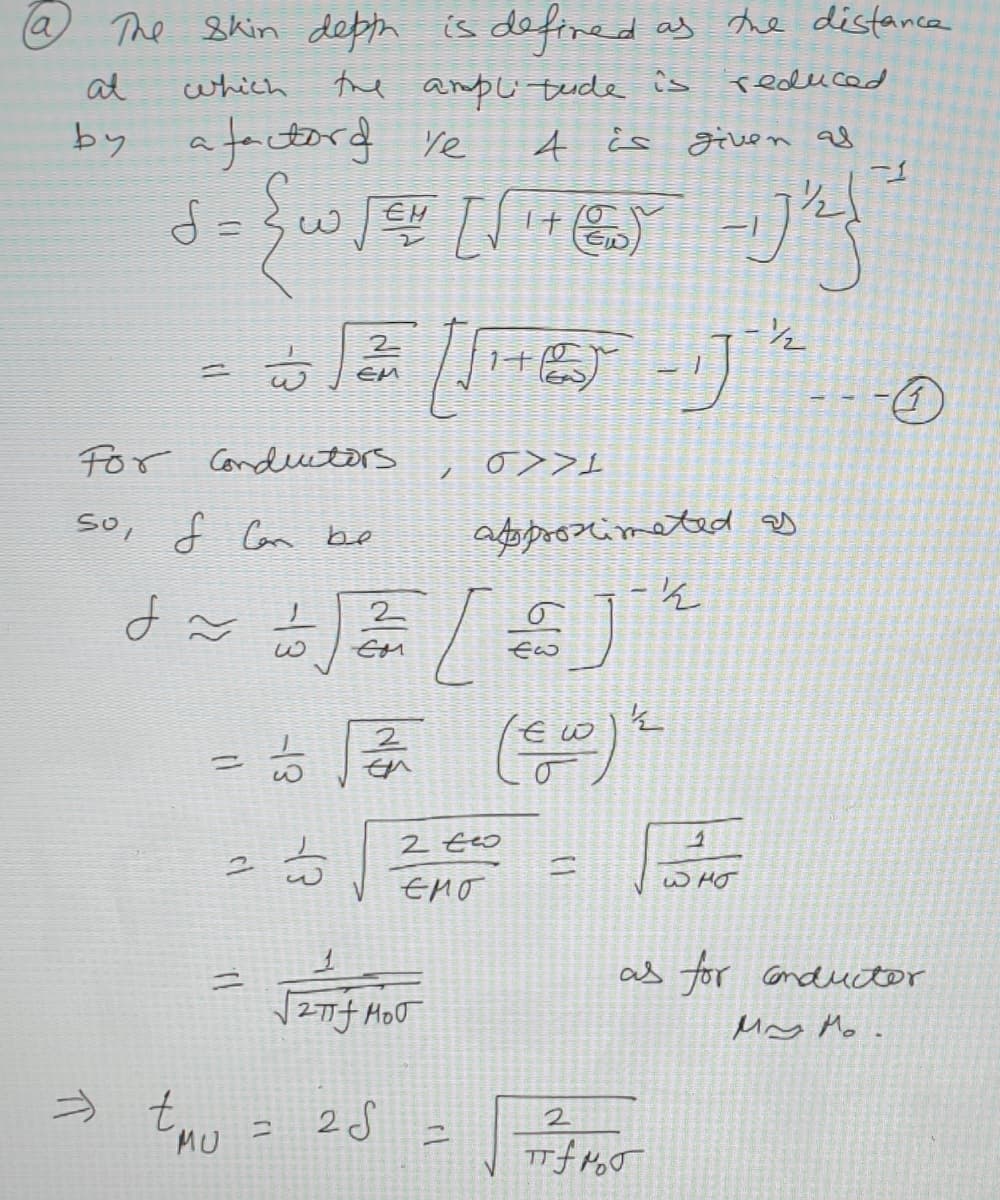 ⓐ The skin depth is defined as the distance
at which the amplitude is reduced
by a factor of 1/e & is given as
δ = { ω √(εμ/2) [ √(1+(σ/εω)²) -1 ]^1/2 }^-1
= 1/ω √(2/εμ) [ √(1+(σ/εω)²) -1 ]^-1/2 ---①
For Conductors , σ>>1
so, δ Can be approximated as
δ ≈ 1/ω √(2/εμ) [ σ/εω ]^-1/2
= 1/ω √(2/εμ) (εω/σ)^1/2
= 1/ω √(2εω/εμσ) = √(1/ωμσ)
= 1/√(2πfμ₀σ) as for conductor
μ≈μ₀.
⇒ t_MU = 2δ = √(2/πfμ₀σ)